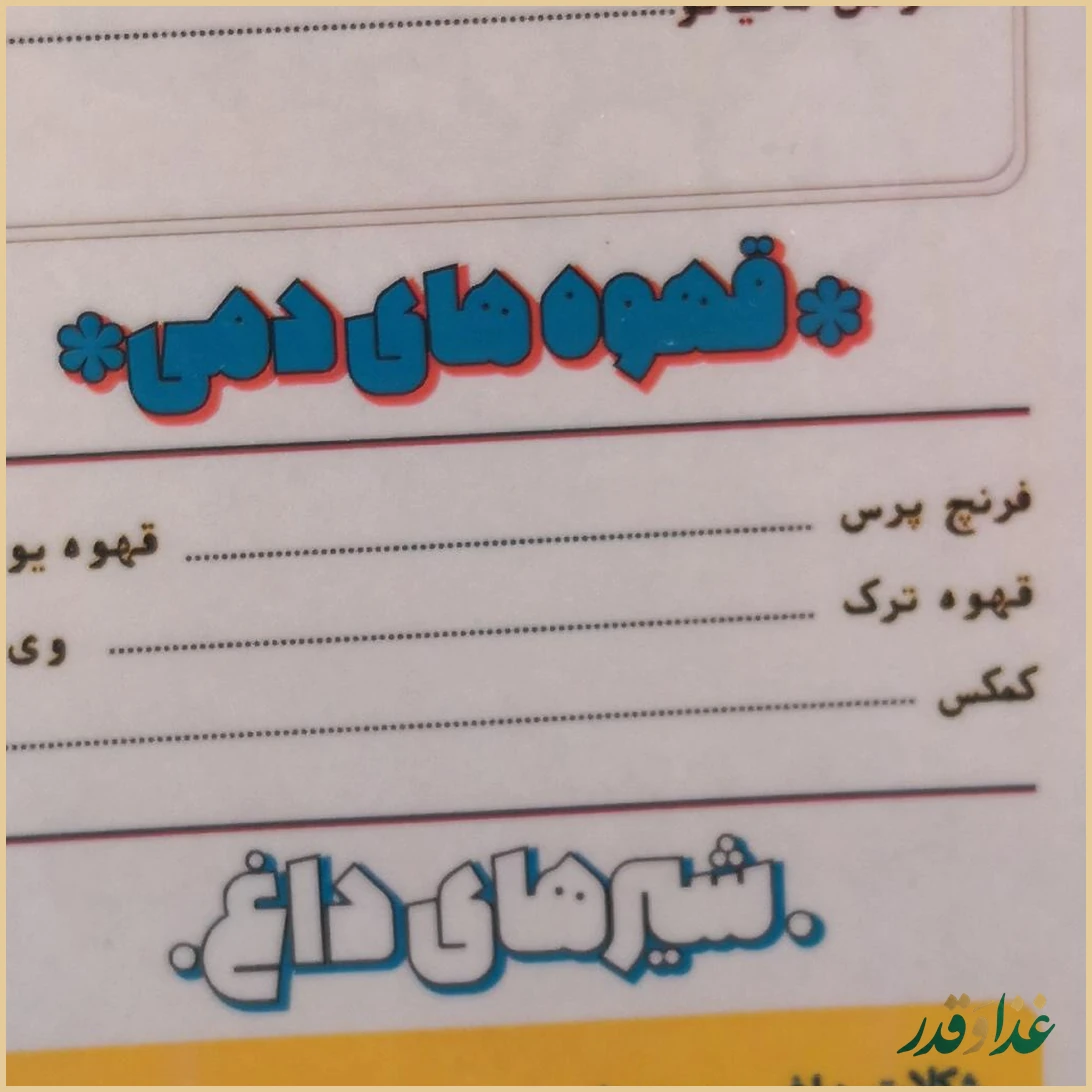 قهوه های دمی
فرنچ پرس
قهوه یو
قهوه ترک
وی
کمکس
شیرهای داغ
غذا و قدر